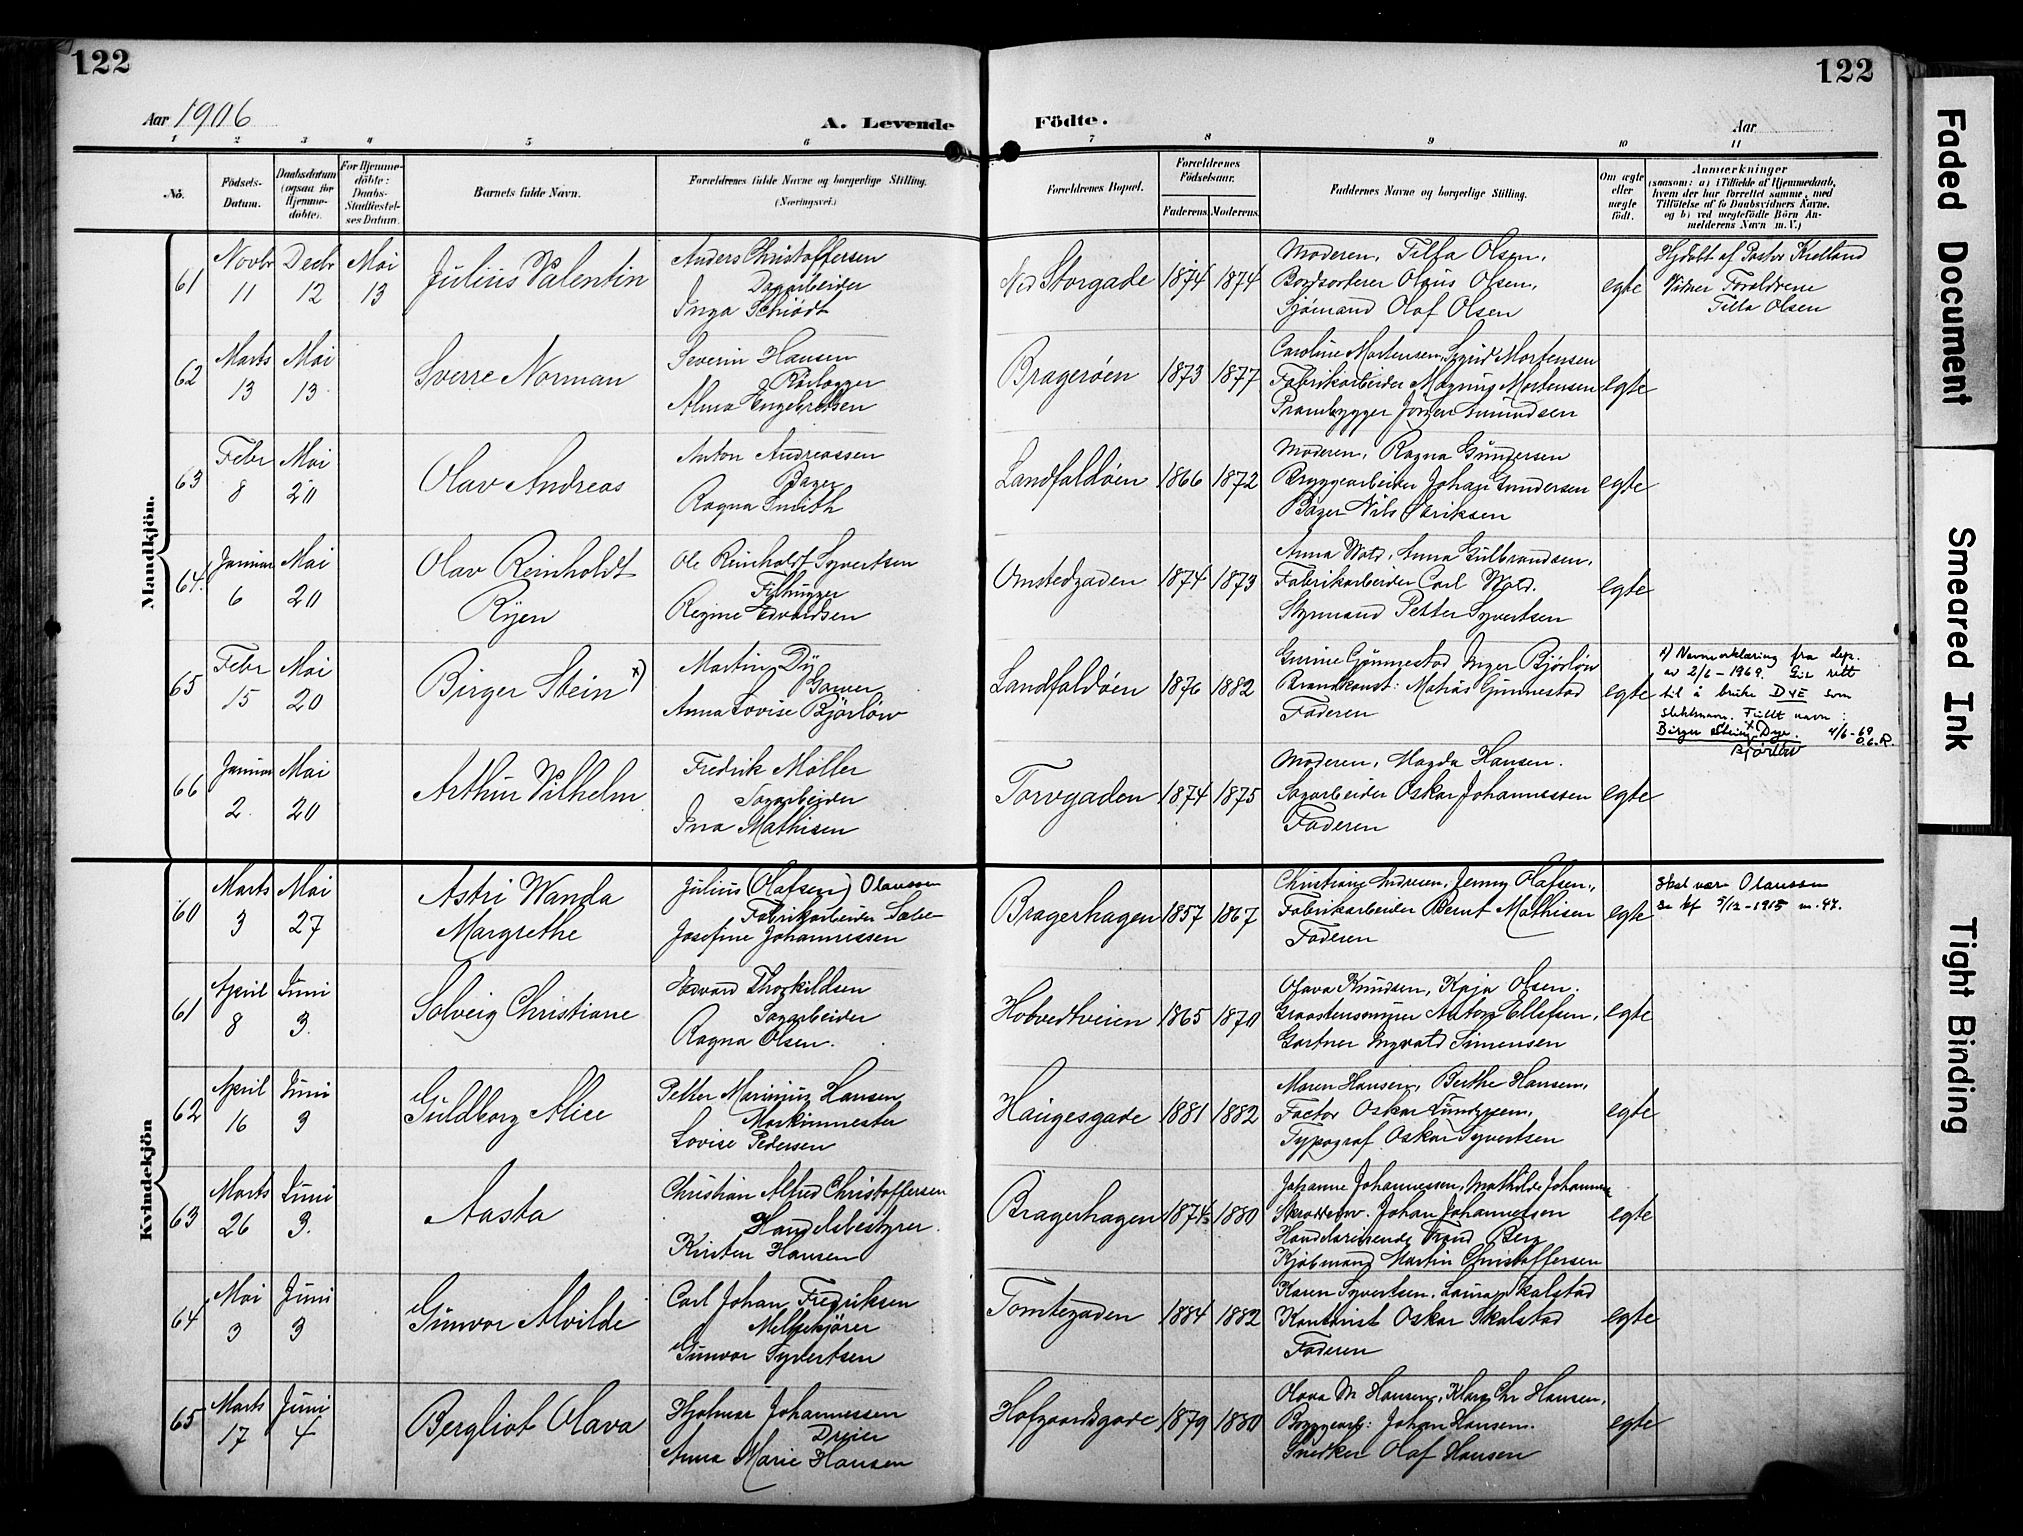 122
122
Aar 1906
A. Levende
Födte.
Aar
1 2 3 4 5 6 7 8 9 10 11
No.
Födsels-
Datum.
Daabsdatum
(ogsaa for
Hjemme-
döbte).
For Hjemme-
döbte:
Daabs-
Stadfæstel-
ses Datum.
Barnets fulde Navn.
Forældrenes fulde Navne og borgerlige Stilling.
(Næringsvei.)
Forældrenes Bopæl.
Forældrenes
Födselsaar.
Faderens
Moderens
Faddernes Navne og borgerlige Stilling.
Om ægte
eller
uægte
födt.
Anmærkninger
(saasom: a) i Tilfælde af Hjemmedaab,
hvem der har forrettet samme, med
Tilföielse af to Daabsvidners Navne,
og b) ved uægtefödte Börn An-
melderens Navn m. V.)
Mandkjön.
61
Novbr
11
Decbr
12
Mai
13
Julius Valentin
Anders Christoffersen
Dagarbeider
Inga Schiødt
Ned Storgade
1874
1874
Moderen, Tilla Olsen,
Bordsorterer Olaus Olsen,
Sjømand Olaf Olsen
egte
Hjdøbt af Pastor Kielland
Vidner Foreldrene
Tilla Olsen
62
Marts
13
Mai
13
Sverre Norman
Severin Hansen
Rørlægger
Alma Engebretsen
Bragerøen
1873
1877
Caroline Mortensen, Sigrid Mortensen
Fabrikarbeider Magnus Mortensen
Prambygger Jørgen Amundsen
egte
63
Febr
8
Mai
20
Olav Andreas
Anton Andreassen
Bager
Ragna Smith
Landfaldøen
1866
1872
Moderen, Ragna Gundersen
Bryggearbeider Johan Gundersen
Bager Nils Eriksen
egte
64
Januar
6
Mai
20
Olav Reinholdt
Ryen
Ole Reinholdt Syvertsen
Filhugger
Regine Edvardsen
Omstedgaden
1874
1873
Anna Wold, Anna Gulbrandsen,
Fabrikarbeider Carl Wold.
Styrmand Petter Syvertsen
egte
65
Febr
15
Mai
20
Birger Stein x)
Martin Dÿ
Garver
Anna Lovise Bjørløw
Landfaldøen
1876
1882
Gurine Gunnestad, Inger Bjørløw
Brandkonst: Matias Gunnestad
Faderen
egte
x) Navneerklæring fra dep.
av 2/6-1969. Gir rett
til å bruke DYE som
slektsnavn. Fullt navn:
Birger Stein Dye. 4/6-69
Bjørløw O.G.R.
66
Januar
2
Mai
20
Arthur Vilhelm
Fredrik Møller
Sagarbeider
Ina Mathisen
Torvgaden
1874
1875
Moderen, Magda Hansen.
Sagarbeider Oskar Johannessen
Faderen
egte
Kvindekjön
60
Marts
3
Mai
27
Astri Wanda
Margrethe
Julius (Olafsen) Olaussen
Fabrikarbeider
Josefine Johannessen
Bragerhagen
1857
1867
Christiane Andresen, Jenny Olafsen,
Fabrikarbeider Bernt Mathisen
Faderen
egte
Skal være Olaussen
se kf 5/12-1915 n. 47.
61
April
8
Juni
3.
Solveig Christiane
Edvard Thorkildsen
Sagarbeider
Ragna Olsen.
Hotvedtveien
1865
1870
Olava Knudsen, Kaja Olsen.
Graastensmurer Anton Ellefsen,
Gartner Ingvald Simensen
egte
62
April
16
Juni
3
Guldborg Alice
Petter Marinius Hansen
Maskinmester
Lovise Pedersen
Haugesgade
1881
1882
Maren Hansen, Berthe Hansen,
Factor Oskar Lundgreen,
Typograf Oskar Syvertsen
egte
63
Marts
26
Juni
3.
Aasta
Christian Alfred Christoffersen
Handelsbestyrer.
Kirsten Hansen
Bragerhagen
1874
1880
Johanne Johannessen, Mathilde Johannes
Johan Johannessen
Handelsreisende Trond Berg
Kjøbmand Martin Christoffersen
egte
64
Mai
3
Juni
3
Gunvor Alvilde
Carl Johan Fredriksen
Melkekjører
Gunvor Syvertsen
Tomtegaden
1884
1882
Karen Syvertsen, Laura Skalstad
Kontorist Oskar Skalstad
Faderen
egte
65
Marts
17
Juni
4
Bergliot Olava
Hjalmar Johannessen
Dreier
Anna Marie Hansen
Hofgaardsgade
1879
1880
Olava M Hansen, Klara Chr Hansen,
Bryggearb: Johan Hansen.
Snedker Olaf Hansen
egte
Faded Document
Smeared Ink
Tight Binding